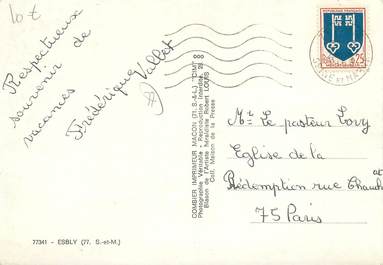 10 €
Respectueux
souvenir de
vacances
Frédérique Vallet
COMBIER IMPRIMEUR MACON (71. S.-&-L.) "CIM"
Photographie Véritable - Reproduction Interdite
Blason de l'Artiste Héraldiste Robert LOUIS
Coll. Maison de la Presse
REPUBLIQUE FRANÇAISE
0,25
Mr. Le pasteur
Eglise de la
Rédemption rue Chauchat
75 Paris
77341 - ESBLY (77. S.-et-M.)